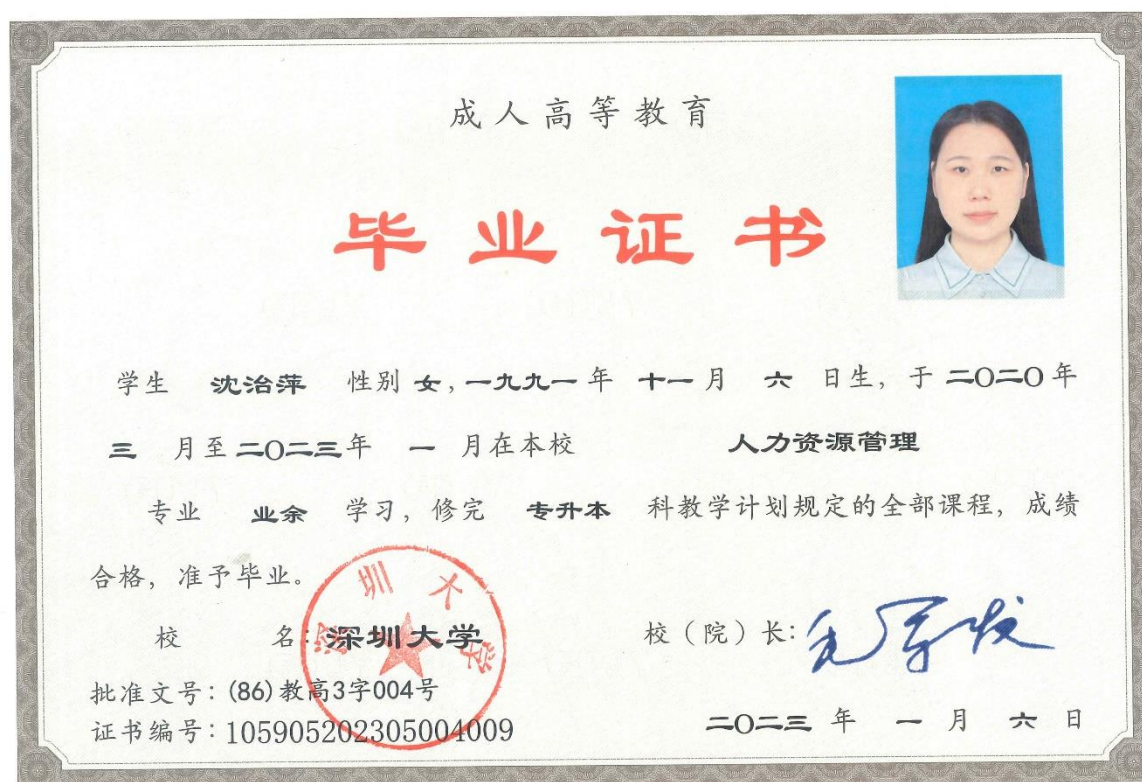 成人高等教育
毕业证书
学生 沈治萍 性别 女，一九九一 年 十一 月 六 日生，于 二〇二〇 年
三 月至 二〇二三 年 一 月在本校 人力资源管理
专业 业余 学习，修完 专升本 科教学计划规定的全部课程，成绩
合格，准予毕业。
深圳大学
校 名：深圳大学 校（院）长：毛军发
批准文号：(86)教高3字004号
证书编号：105905202305004009
二〇二三 年 一 月 六 日